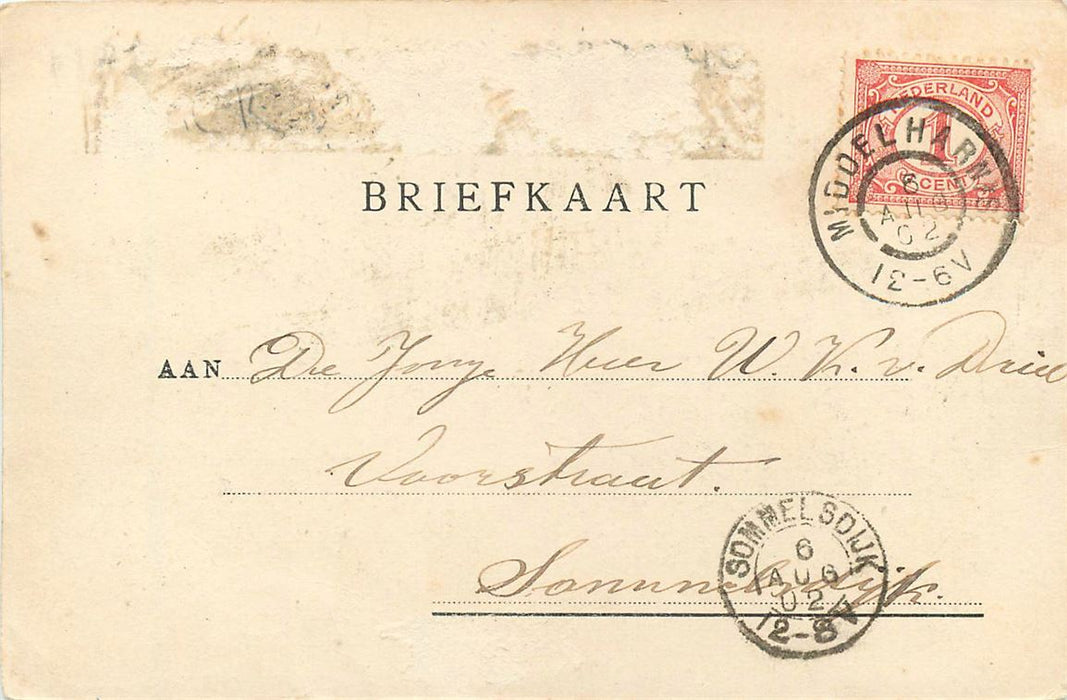 BRIEFKAART
NEDERLAND
1
CENT
MIDDELHARNIS
6
AUG
02
12-6V
AAN De Jonge Heer W. K. v. Driel
Voorstraat.
Sommelsdijk.
SOMMELSDIJK
6
AUG
02
12-8V